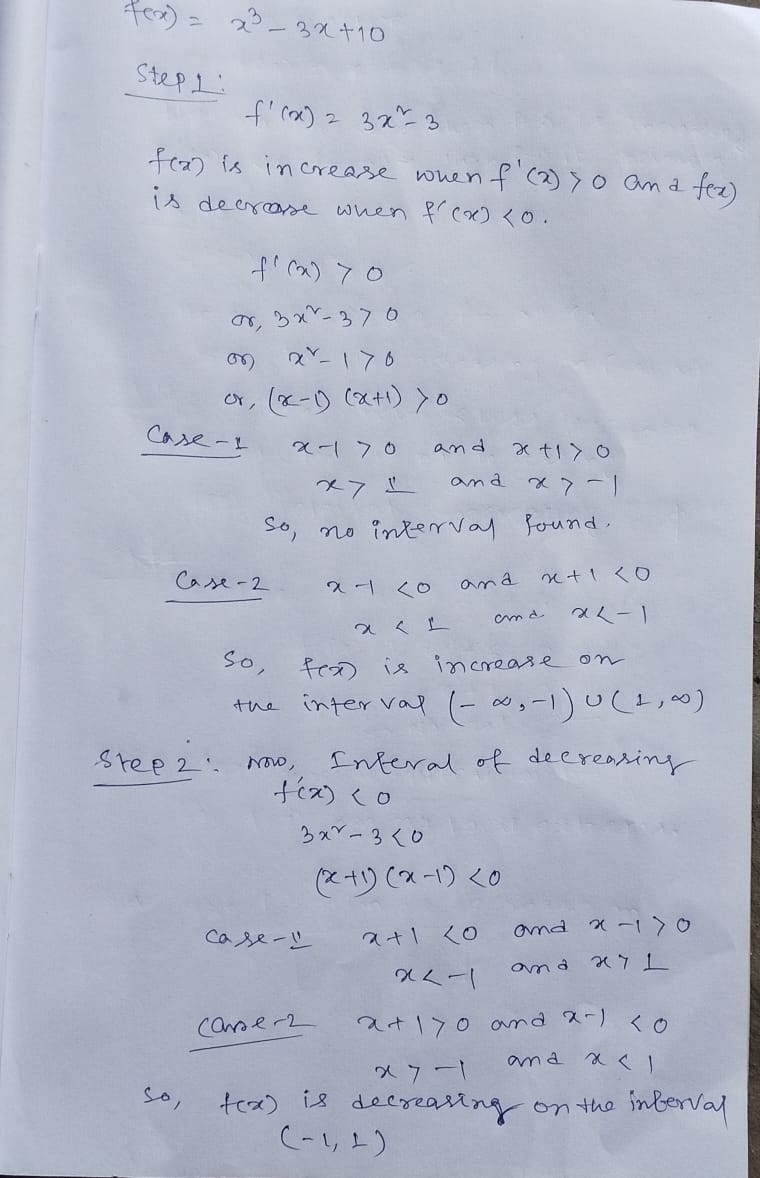 f(x) = x³ - 3x + 10
Step 1:
f'(x) = 3x² - 3
f(x) is increase when f'(x) > 0 and f(x)
is decrease when f'(x) < 0.
f'(x) > 0
or, 3x² - 3 > 0
or, x² - 1 > 0
or, (x-1) (x+1) > 0
Case-1 x-1 > 0 and x+1 > 0
x > 1 and x > -1
So, no interval found.
Case-2 x-1 < 0 and x+1 < 0
x < 1 and x < -1
So, f(x) is increase on
the interval (-∞, -1) ∪ (1, ∞)
Step 2: Now, Interval of decreasing
f'(x) < 0
3x² - 3 < 0
(x+1) (x-1) < 0
Case-1 x+1 < 0 and x-1 > 0
x < -1 and x > 1
Case-2 x+1 > 0 and x-1 < 0
x > -1 and x < 1
So, f(x) is decreasing on the interval
(-1, 1)